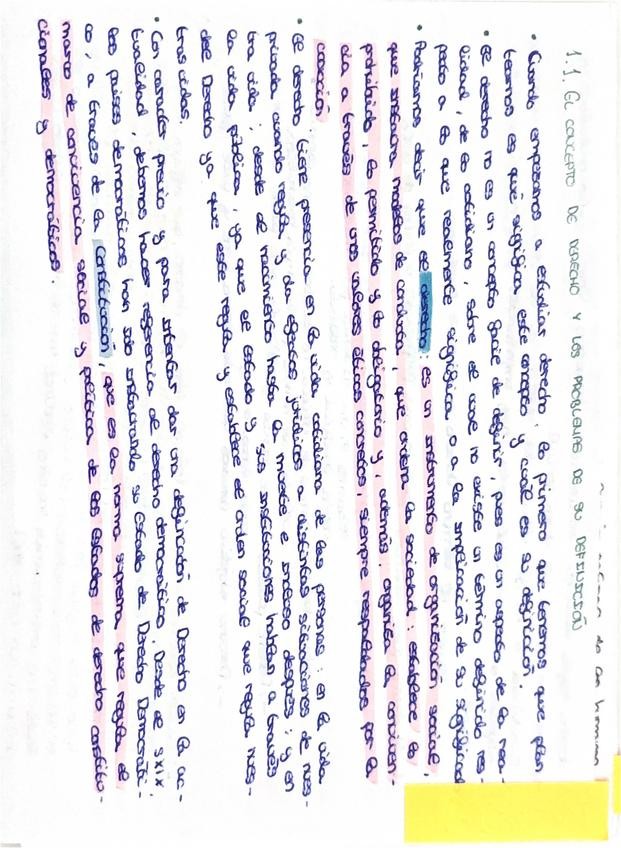 1.1. EL CONCEPTO DE DERECHO Y LOS PROBLEMAS DE SU DEFINICIÓN
• Cuando empezamos a estudiar derecho, lo primero que tenemos que plan
tearnos es qué significa este concepto y cuál es su definición.
• El derecho no es un concepto fácil de definir, pues es un aspecto de la rea-
lidad, de lo cotidiano, sobre el cual no existe un término definido res-
pecto a lo que realmente significa o a la implicación de su significado
• Podríamos decir que el derecho: es un instrumento de organización social,
que instaura modelos de conducta, que ordena la sociedad: establece lo
prohibido, lo permitido y lo obligatorio y, además, organiza la conviven-
cia a través de unos valores éticos concretos, siempre respaldados por la
coacción.
• El derecho tiene presencia en la vida cotidiana de las personas: en la vida
privada cuando regla y da efectos jurídicos a distintas situaciones de nues-
tra vida, desde el nacimiento hasta la muerte e incluso después; y en
la vida pública, ya que el Estado y sus instituciones hablan a través
del Derecho ya que este regla y establece el orden social que regla nues-
tras vidas.
• Con carácter previo y para intentar dar una definición de Derecho en la ac-
tualidad, debemos hacer referencia al derecho democrático. Desde el s.XIX
los países democráticos han ido instaurando su Estado de Derecho Democráti-
co, a través de la Constitución, que es la norma suprema que regla el
marco de convivencia social y política de los Estados de derecho constitu-
cionales y democráticos.